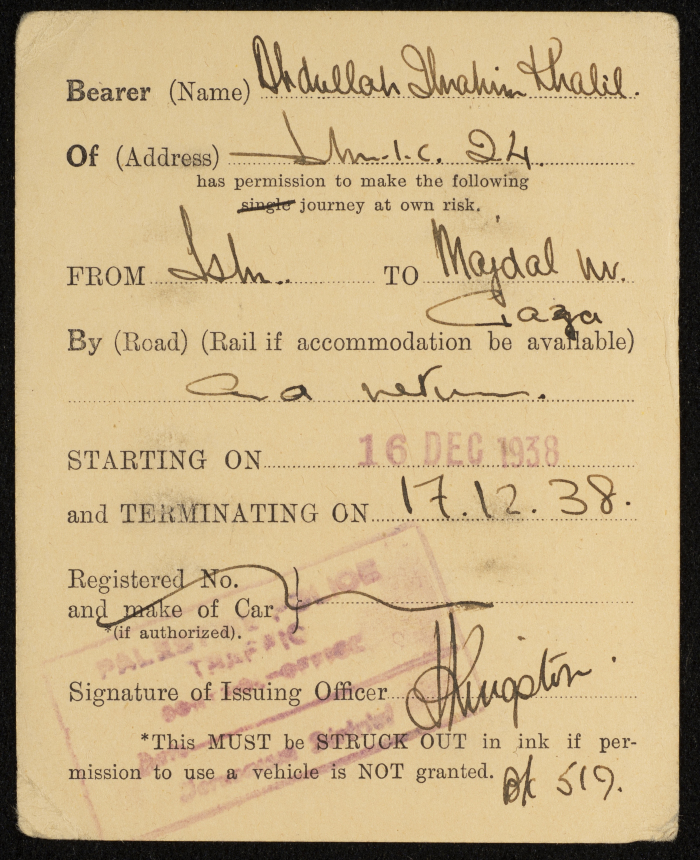 Bearer (Name) Abdullah Ibrahim Khalil.
Of (Address) I.C. 24.
has permission to make the following
single journey at own risk.
FROM TO Majdal nr.
Gaza
By (Road) (Rail if accommodation be available)
and return.
STARTING ON 16 DEC 1938
and TERMINATING ON 17.12.38.
Registered No.
and make of Car
*(if authorized).
PALESTINE POLICE
TRAFFIC
Signature of Issuing Officer Kingston
*This MUST be STRUCK OUT in ink if per-
mission to use a vehicle is NOT granted.
519.